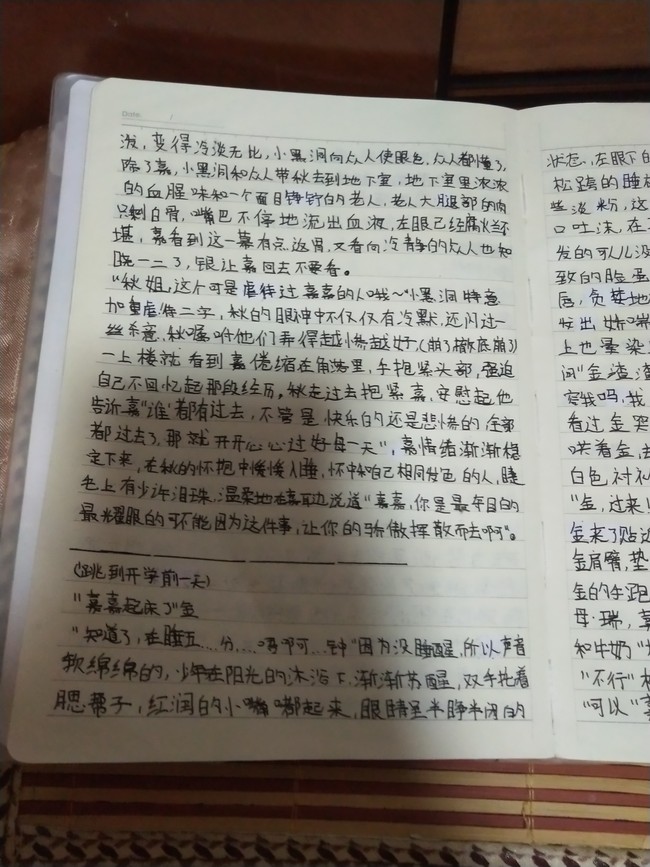 Date: /
泼,变得冷淡无比,小黑洞向众人使眼色,众人都懂了,
除了嘉,小黑洞和众人带秋去到地下室,地下室里浓浓
的血腥味和一个面目狰狞的老人,老人大腿部的肉
只剩白骨,嘴巴不停地流出血液,左眼已经腐烂不
堪,嘉看到这一幕有点返胃,又看向冷静的众人也知
晓一二了,银让嘉回去不要看。
“秋姐,这个可是虐待过嘉嘉的人哦~”小黑洞特意
加重虐待二字,秋的眼神中不仅仅有冷默,还闪过一
丝杀意,秋嘱咐他们弄得越惨越好,(崩了撤底崩了)
一上楼就看到嘉倦缩在角落里,手抱紧头部,强迫
自己不回忆起那段经历。秋走过去抱紧嘉,安慰起他
告诉嘉“谁都有过去,不管是快乐的还是悲惨的全部
都过去了,那就开开心心过好每一天”,嘉情绪渐渐稳
定下来,在秋的怀抱中慢慢入睡,怀中和自己相同发色的人,睫
毛上有少许泪珠,温柔地在嘉耳边说道“嘉嘉,你是最夺目的
最耀眼的可不能因为这件事,让你的骄傲挥散而去啊”。
(跳到开学前一天)
“嘉嘉起床了”金
“知道了,在睡五...分....呜啊可...钟”因为没睡醒,所以声音
软绵绵的,少年在阳光的沐浴下,渐渐苏醒,双手托着
腮帮子,红润的小嘴嘟起来,眼睛呈半睁半闭的
状态,左眼下
松跨的睡
些淡粉,这
口吐沫,在
发的可人儿没
致的脸蛋
唇,贪婪地
发出娇喘
上也晕染
问“金渣渣
穿我吗,我
看过金
哄着金,
白色,衬衫
“金,过来
金来了贴
金肩膀,垫
金的手
母·瑞,
和牛奶“
“不行”
“可以”